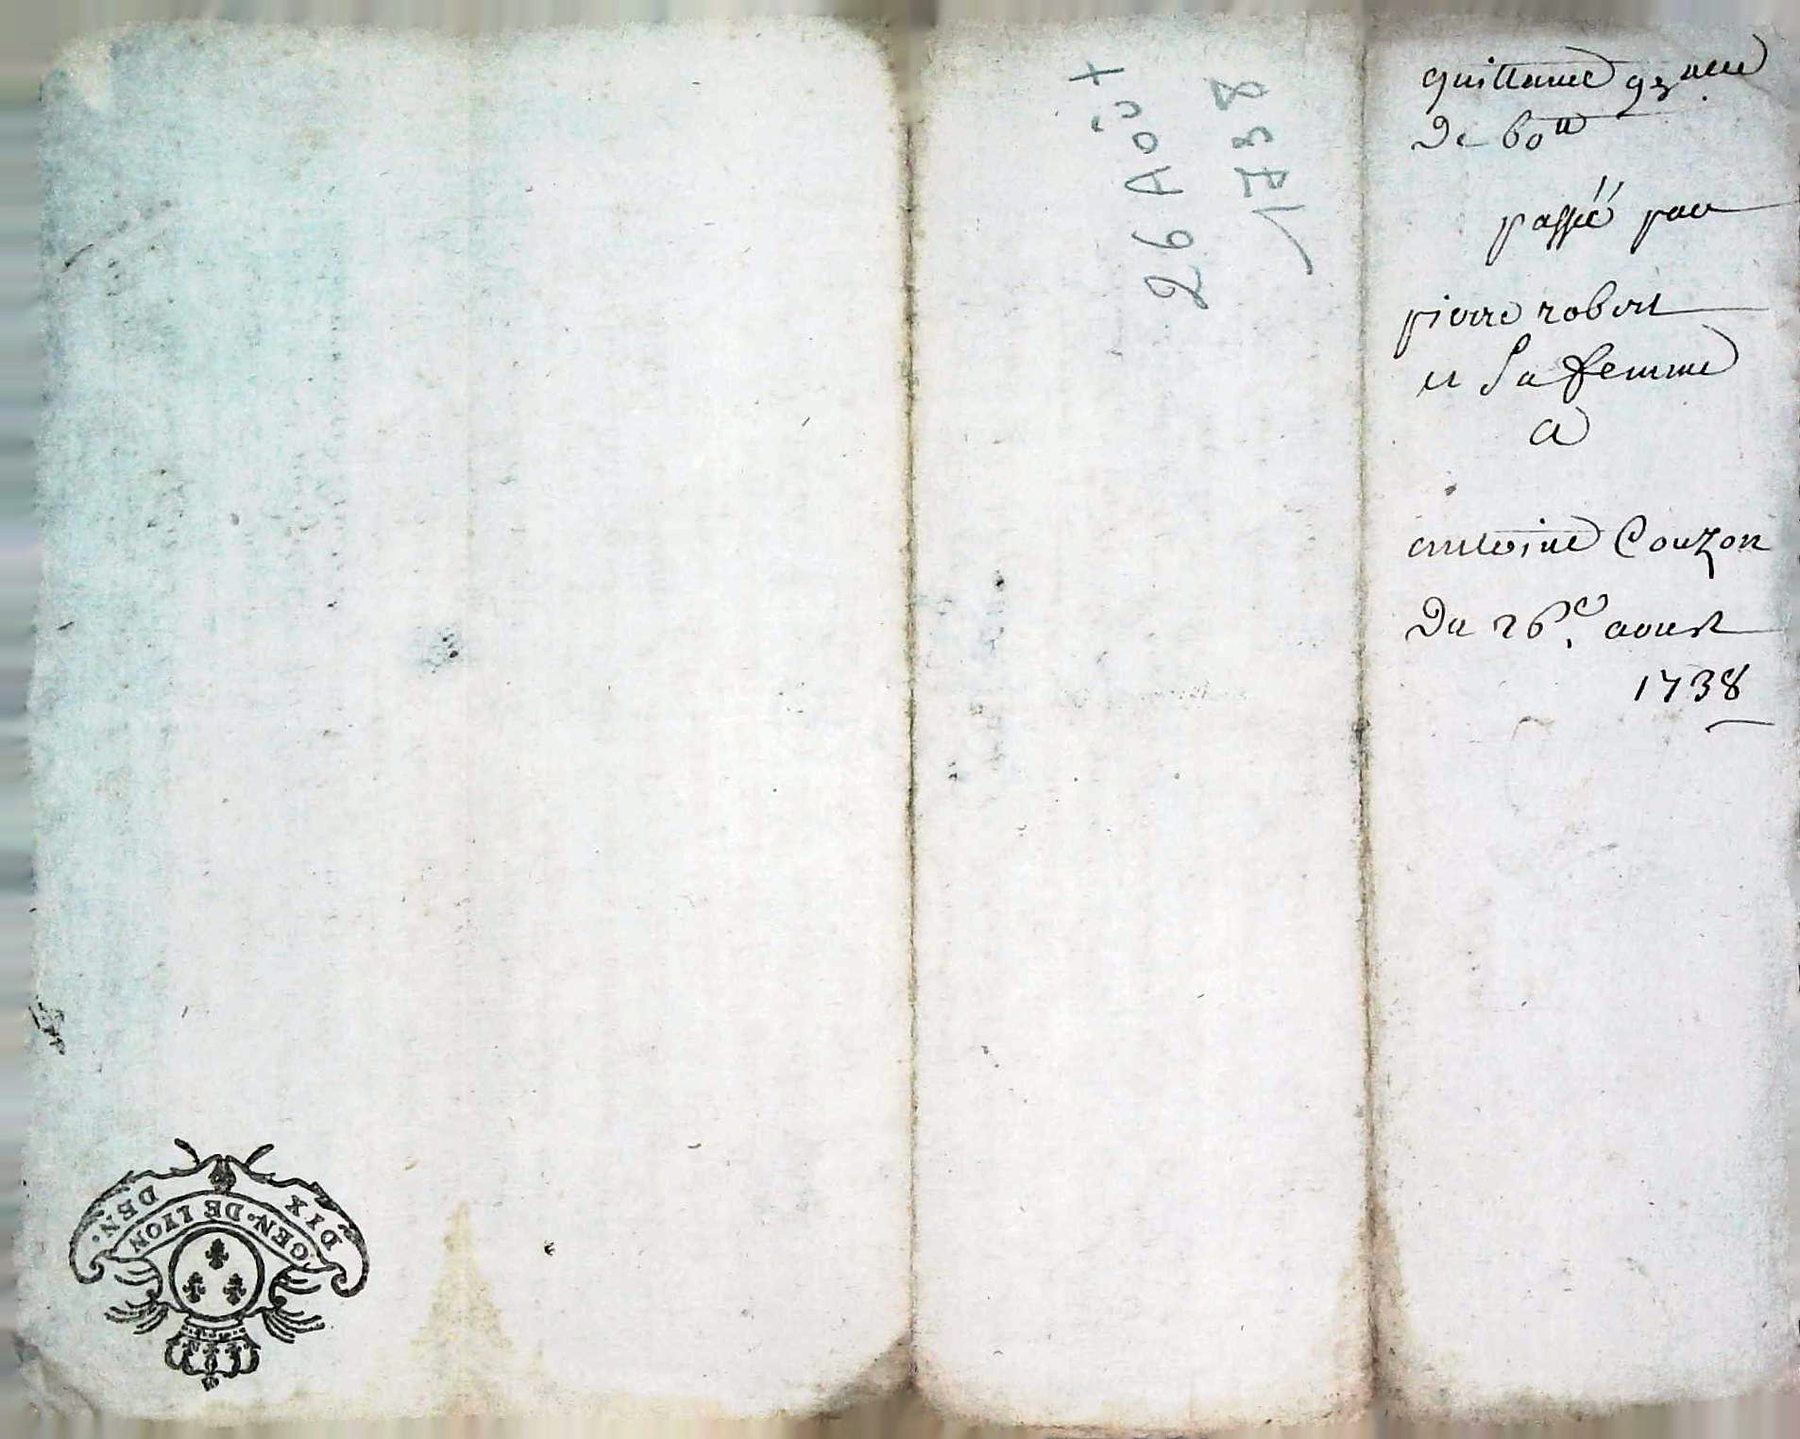 quittance g^nalle
De 60^tt
passée par
pierre robert
et Sa femme
a
antoine Couzon
Du 26^e. aoust
1738
26 Août
1738
DIX DEN.
GEN. DE LYON